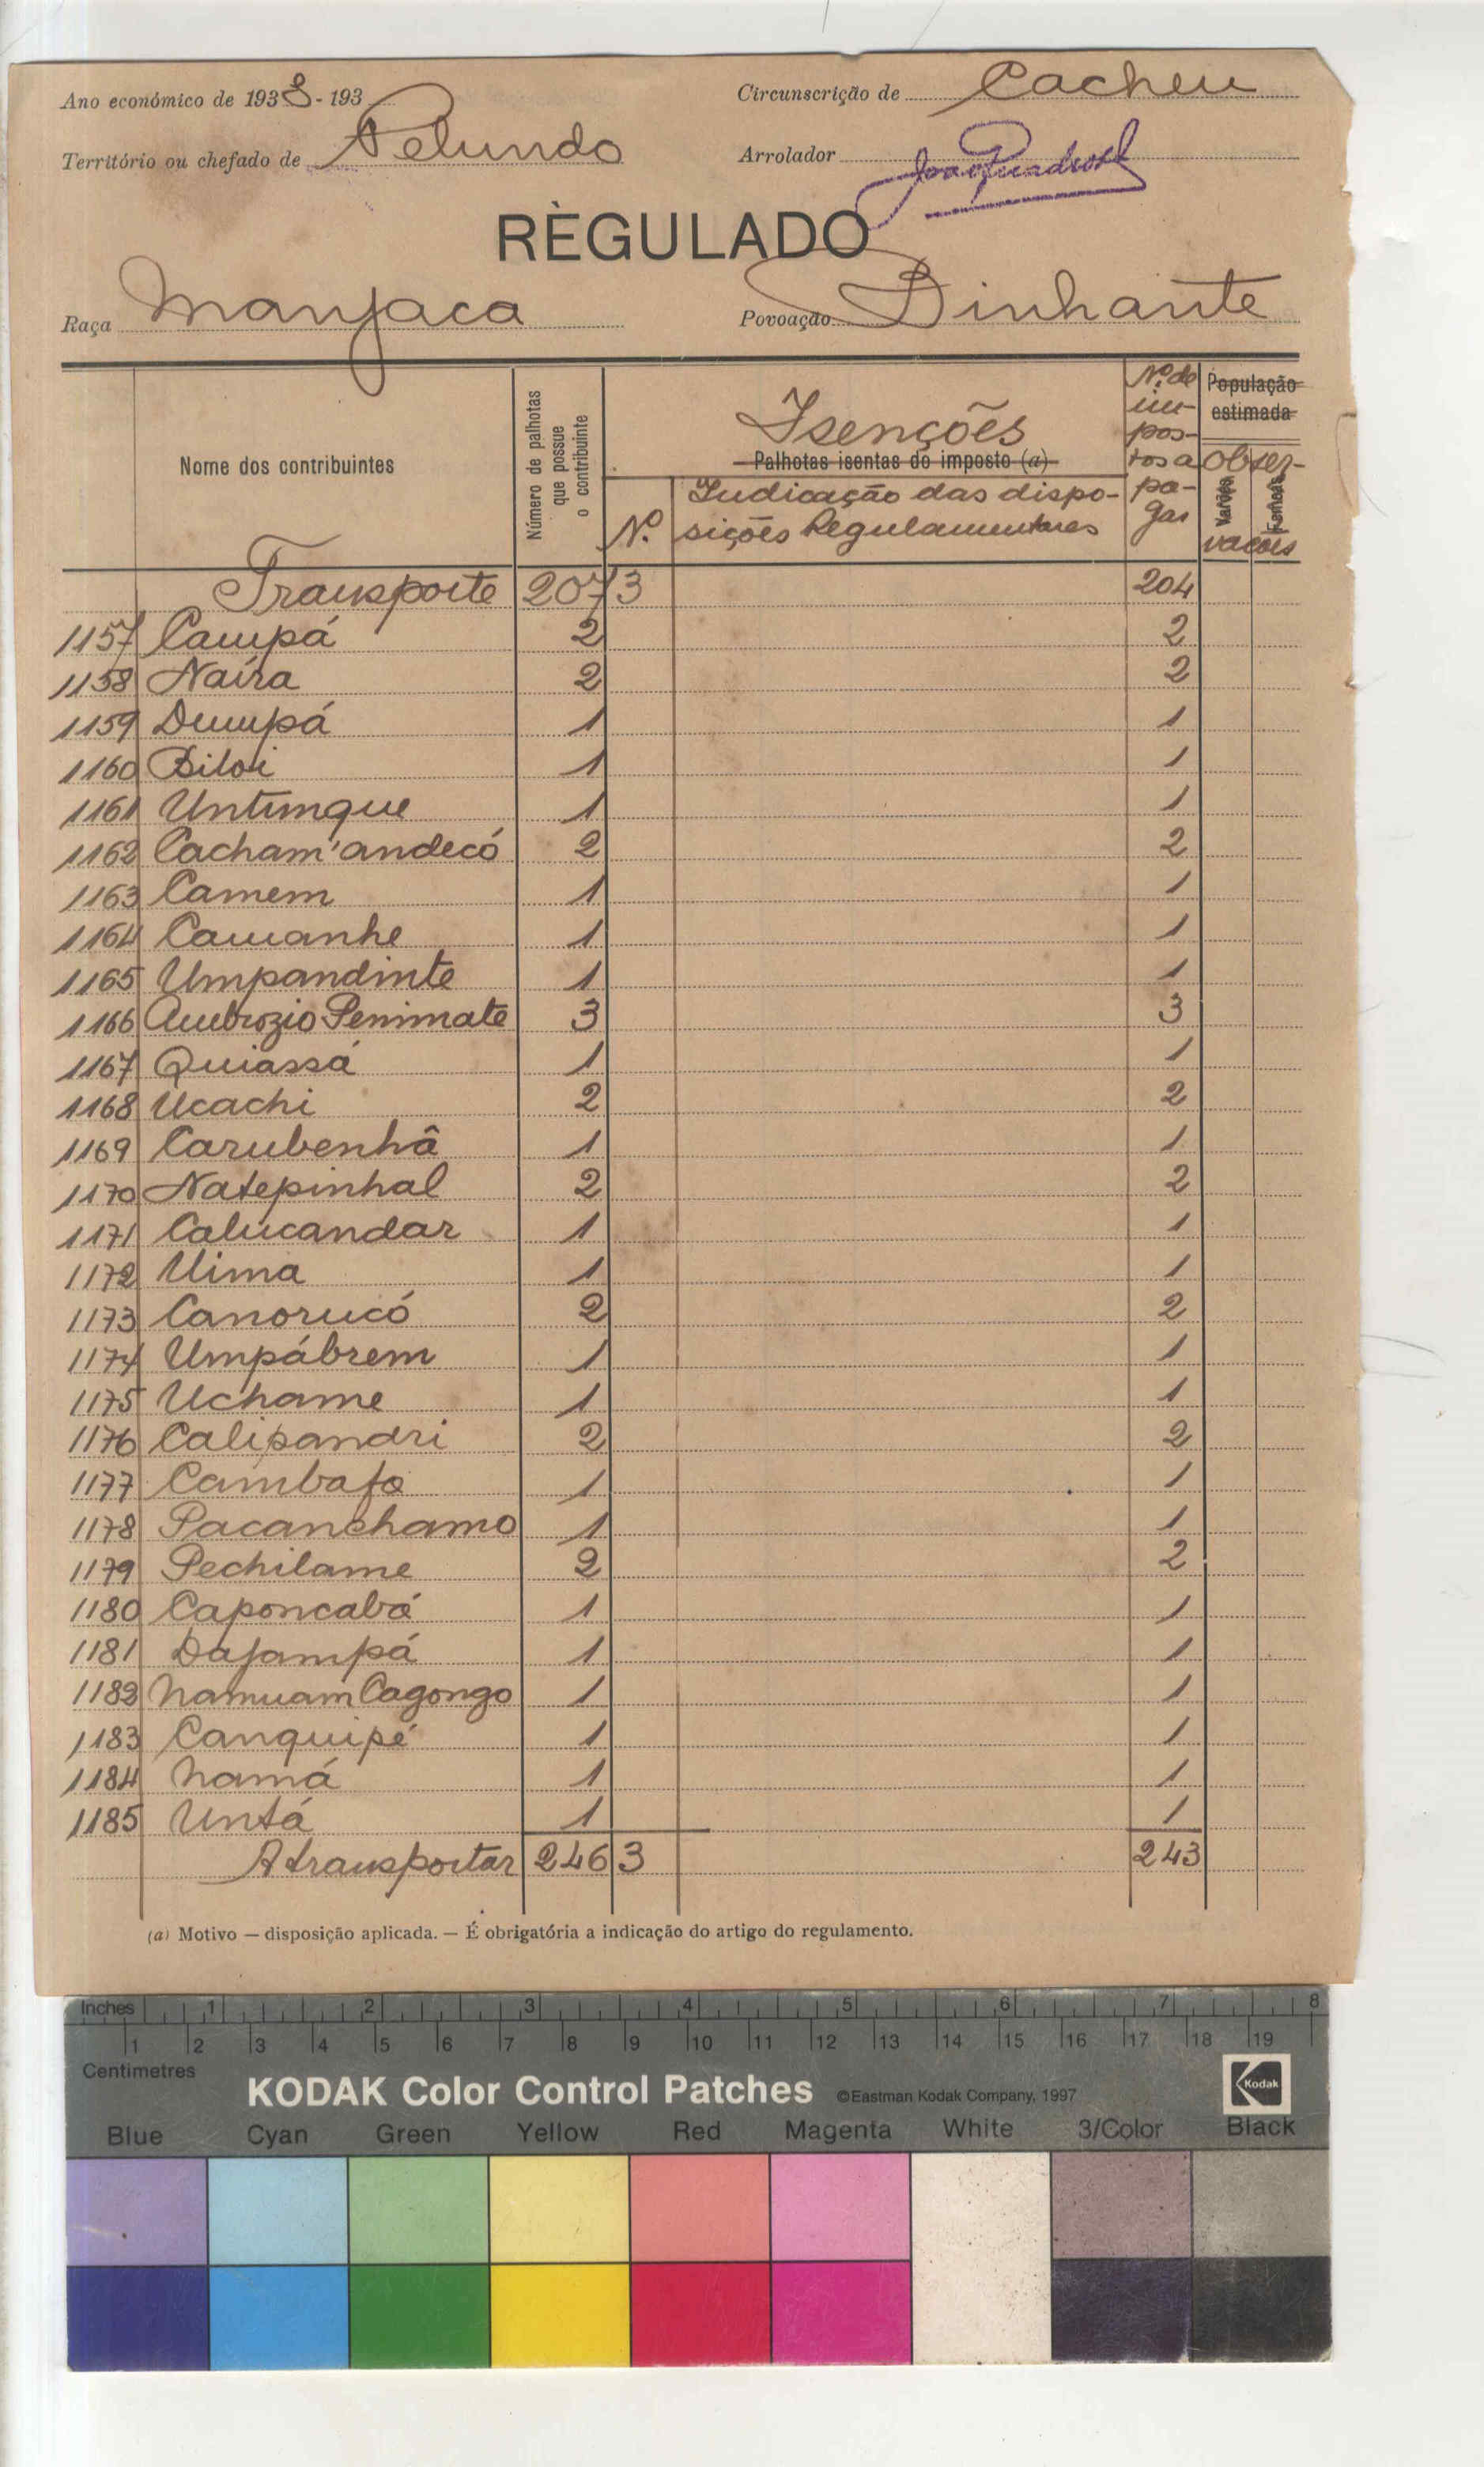 Ano económico de 1938-193
Circunscrição de Cacheu
Território ou chefado de Pelundo
Arrolador
RÈGULADO
Raça Manjaca
Povoação Binhante
Nome dos contribuintes
Número de palhotas que possue o contribuinte
Isenções
Palhotas isentas do imposto (a)
Nº
Indicação das disposições Regulamentares
Nº de impostos a pagar
População estimada
Observações
Varões
Femeas
Transporte 207 3 204
1157 Campá 2 2
1158 Naíra 2 2
1159 Dumpá 1 1
1160 Biloi 1 1
1161 Untimque 1 1
1162 Cacham'andecó 2 2
1163 Camem 1 1
1164 Camanhe 1 1
1165 Umpandinte 1 1
1166 Ambrozio Penimate 3 3
1167 Quiassá 1 1
1168 Ucachi 2 2
1169 Carubenhã 1 1
1170 Natepinhal 2 2
1171 Calucandar 1 1
1172 Uima 1 1
1173 Canorucó 2 2
1174 Umpábrem 1 1
1175 Uchame 1 1
1176 Calipandri 2 2
1177 Cambafa 1 1
1178 Pacanchamo 1 1
1179 Pechilame 2 2
1180 Caponcabá 1 1
1181 Dafampá 1 1
1182 Namuam Cagongo 1 1
1183 Canquipé 1 1
1184 Namá 1 1
1185 Untá 1 1
A transportar 246 3 243
(a) Motivo — disposição aplicada. — É obrigatória a indicação do artigo do regulamento.
Inches 1 2 3 4 5 6 7 8
1 2 3 4 5 6 7 8 9 10 11 12 13 14 15 16 17 18 19
Centimetres
KODAK Color Control Patches ©Eastman Kodak Company, 1997 Kodak
Blue Cyan Green Yellow Red Magenta White 3/Color Black